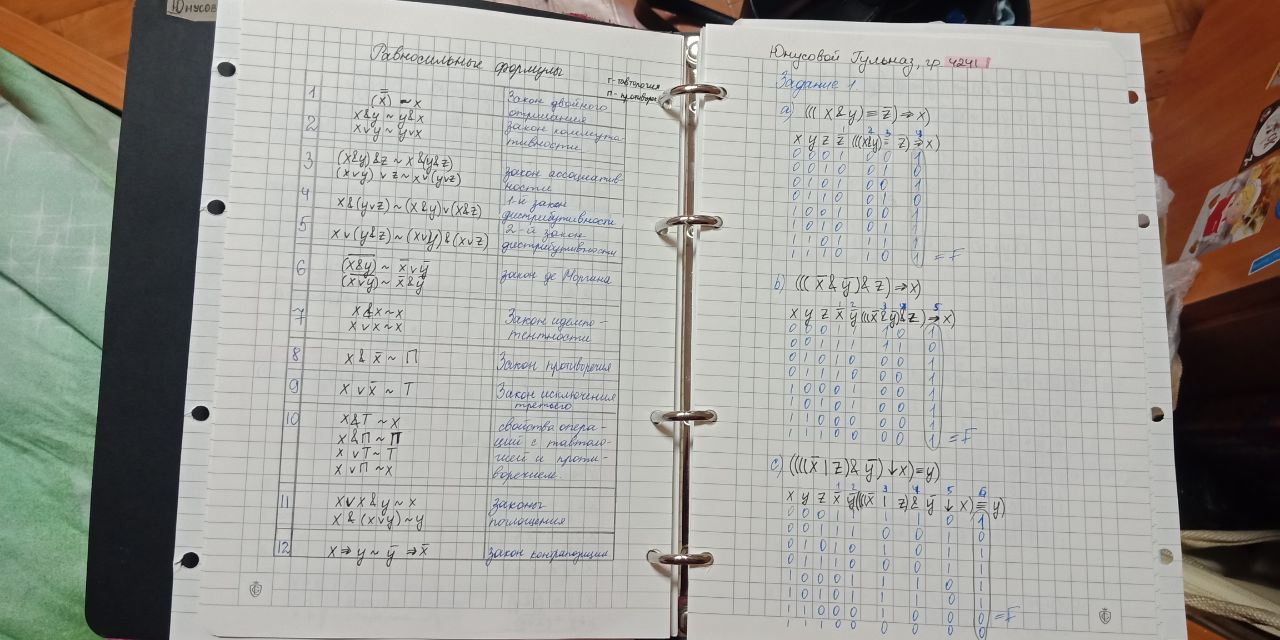 Юнусов
Равносильные формулы
Т - тавтология
П - противореч
1 (x̿) ~ x Закон двойного отрицания
2 x&y ~ y&x
x∨y ~ y∨x закон коммутативности
3 (x&y)&z ~ x&(y&z)
(x∨y)∨z ~ x∨(y∨z) закон ассоциативности
4 x&(y∨z) ~ (x&y)∨(x&z) 1-й закон дистрибутивности
5 x∨(y&z) ~ (x∨y)&(x∨z) 2-й закон дистрибутивности
6 (x&y)̅ ~ x̅∨y̅
(x∨y)̅ ~ x̅&y̅ закон де Моргана
7 x&x ~ x
x∨x ~ x Закон идемпотентности
8 x&x̅ ~ П Закон противоречия
9 x∨x̅ ~ Т Закон исключения третьего
10 x&Т ~ x
x&П ~ П
x∨Т ~ Т
x∨П ~ x свойства операций с тавтологией и противоречием.
11 x∨x&y ~ x
x&(x∨y) ~ y законы поглощения
12 x⇒y ~ y̅⇒x̅ закон контрапозиции
Юнусовой Гульназ, гр 4241
Задание 1
а) (((x&y)≡z̅)⇒x)
1 2 3 4
x y z z̅ (((x&y)≡z̅)⇒x)
0 0 0 1 0 0 1
0 0 1 0 0 1 0
0 1 0 1 0 0 1
0 1 1 0 0 1 0
1 0 0 1 0 0 1
1 0 1 0 0 1 1
1 1 0 1 1 1 1
1 1 1 0 1 0 1 = F
б) (((x̅&y̅)&z)⇒x)
1 2 3 4 5
x y z x̅ y̅ (((x̅&y̅)&z)⇒x)
0 0 0 1 1 1 0 1
0 0 1 1 1 1 1 0
0 1 0 1 0 0 0 1
0 1 1 1 0 0 0 1
1 0 0 0 1 0 0 1
1 0 1 0 1 0 0 1
1 1 0 0 0 0 0 1
1 1 1 0 0 0 0 1 = F
с) ((((x̅|z)&y̅)↓x)≡y)
1 2 3 4 5 6
x y z x̅ y̅ ((((x̅|z)&y̅)↓x)≡y)
0 0 0 1 1 1 1 0 1
= F